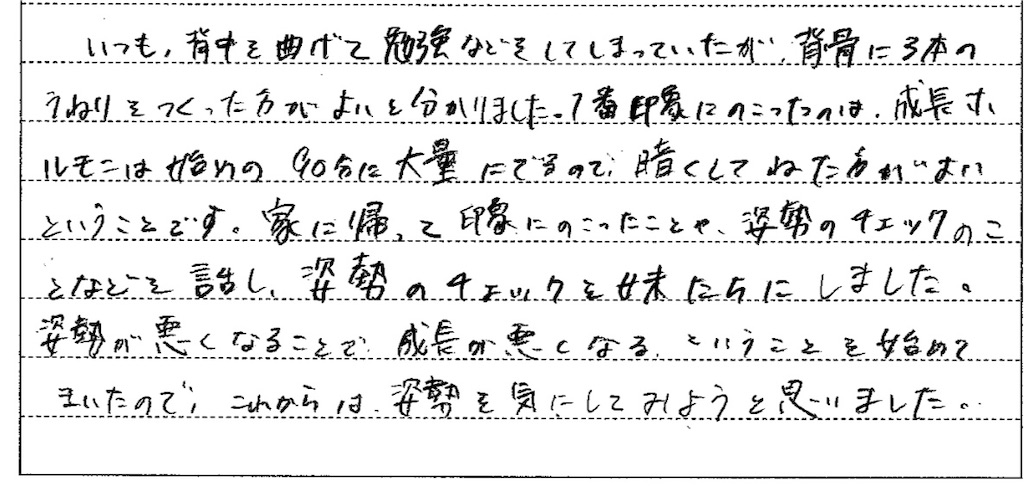 いつも、背中を曲げて勉強などをしてしまっていたが、背骨に3本の
うねりをつくった方がよいと分かりました。1番印象にのこったのは、成長ホ
ルモンは始めの90分に大量にでるので、暗くしてねた方がよい
ということです。家に帰って印象にのこったことや、姿勢のチェックのこ
となどを話し、姿勢のチェックを妹たちにしました。
姿勢が悪くなることで、成長が悪くなる、ということを始めて
きいたので、これからは、姿勢を気にしてみようと思いました。